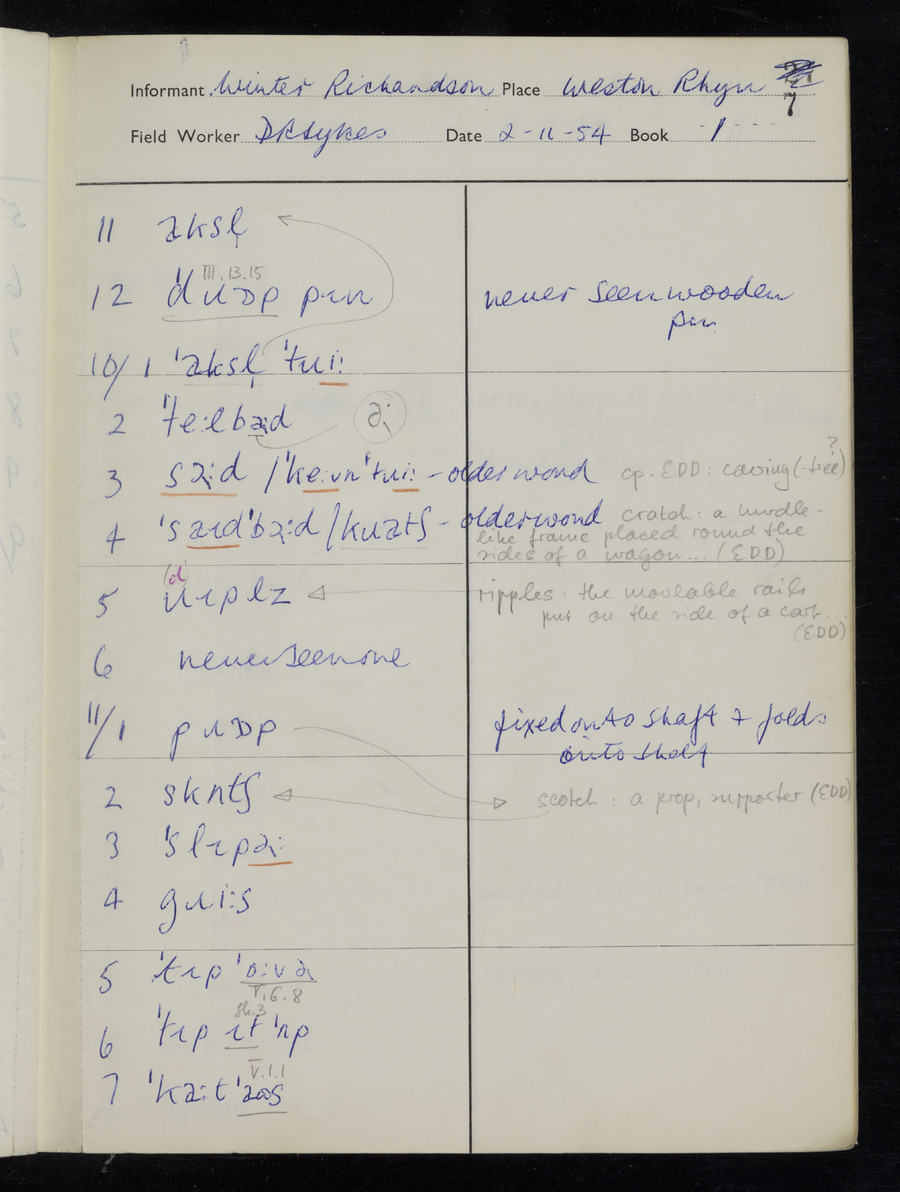 Informant Winter Richardson Place Weston Rhyn
7
Field Worker DRSykes Date 2-11-54 Book 1
11 aksl̩
III.13.15
12 ˈdɹɒp pɪn never seen wooden
pin
10/1 ˈaksl̩ ˈtɹiː
2 ˈteːɫbəːd ə:
?
3 səːd / ˈkeːvnˈtɹiː - older word cp. EDD: caving (-tree)
4 ˈsəɪdˈbəːd / kɹatʃ - older word cratch: a hurdle-
like frame placed round the
sides of a wagon... (EDD)
(d)
5 ɹɪplz ripples: the moveable rails
put on the side of a cart...
(EDD)
6 never seen one
11/1 pɹɒp fixed onto shaft + folds
onto shaft
2 skɒtʃ scotch: a prop, supporter (EDD)
3 ˈslɪpəː
4 gɹiːs
5 ˈtɪp ˈoːvə
V.6.8
Sh.3
6 ˈtɪp ɪt ˈʌp
V.1.1
7 ˈkaːt ˈaʊs